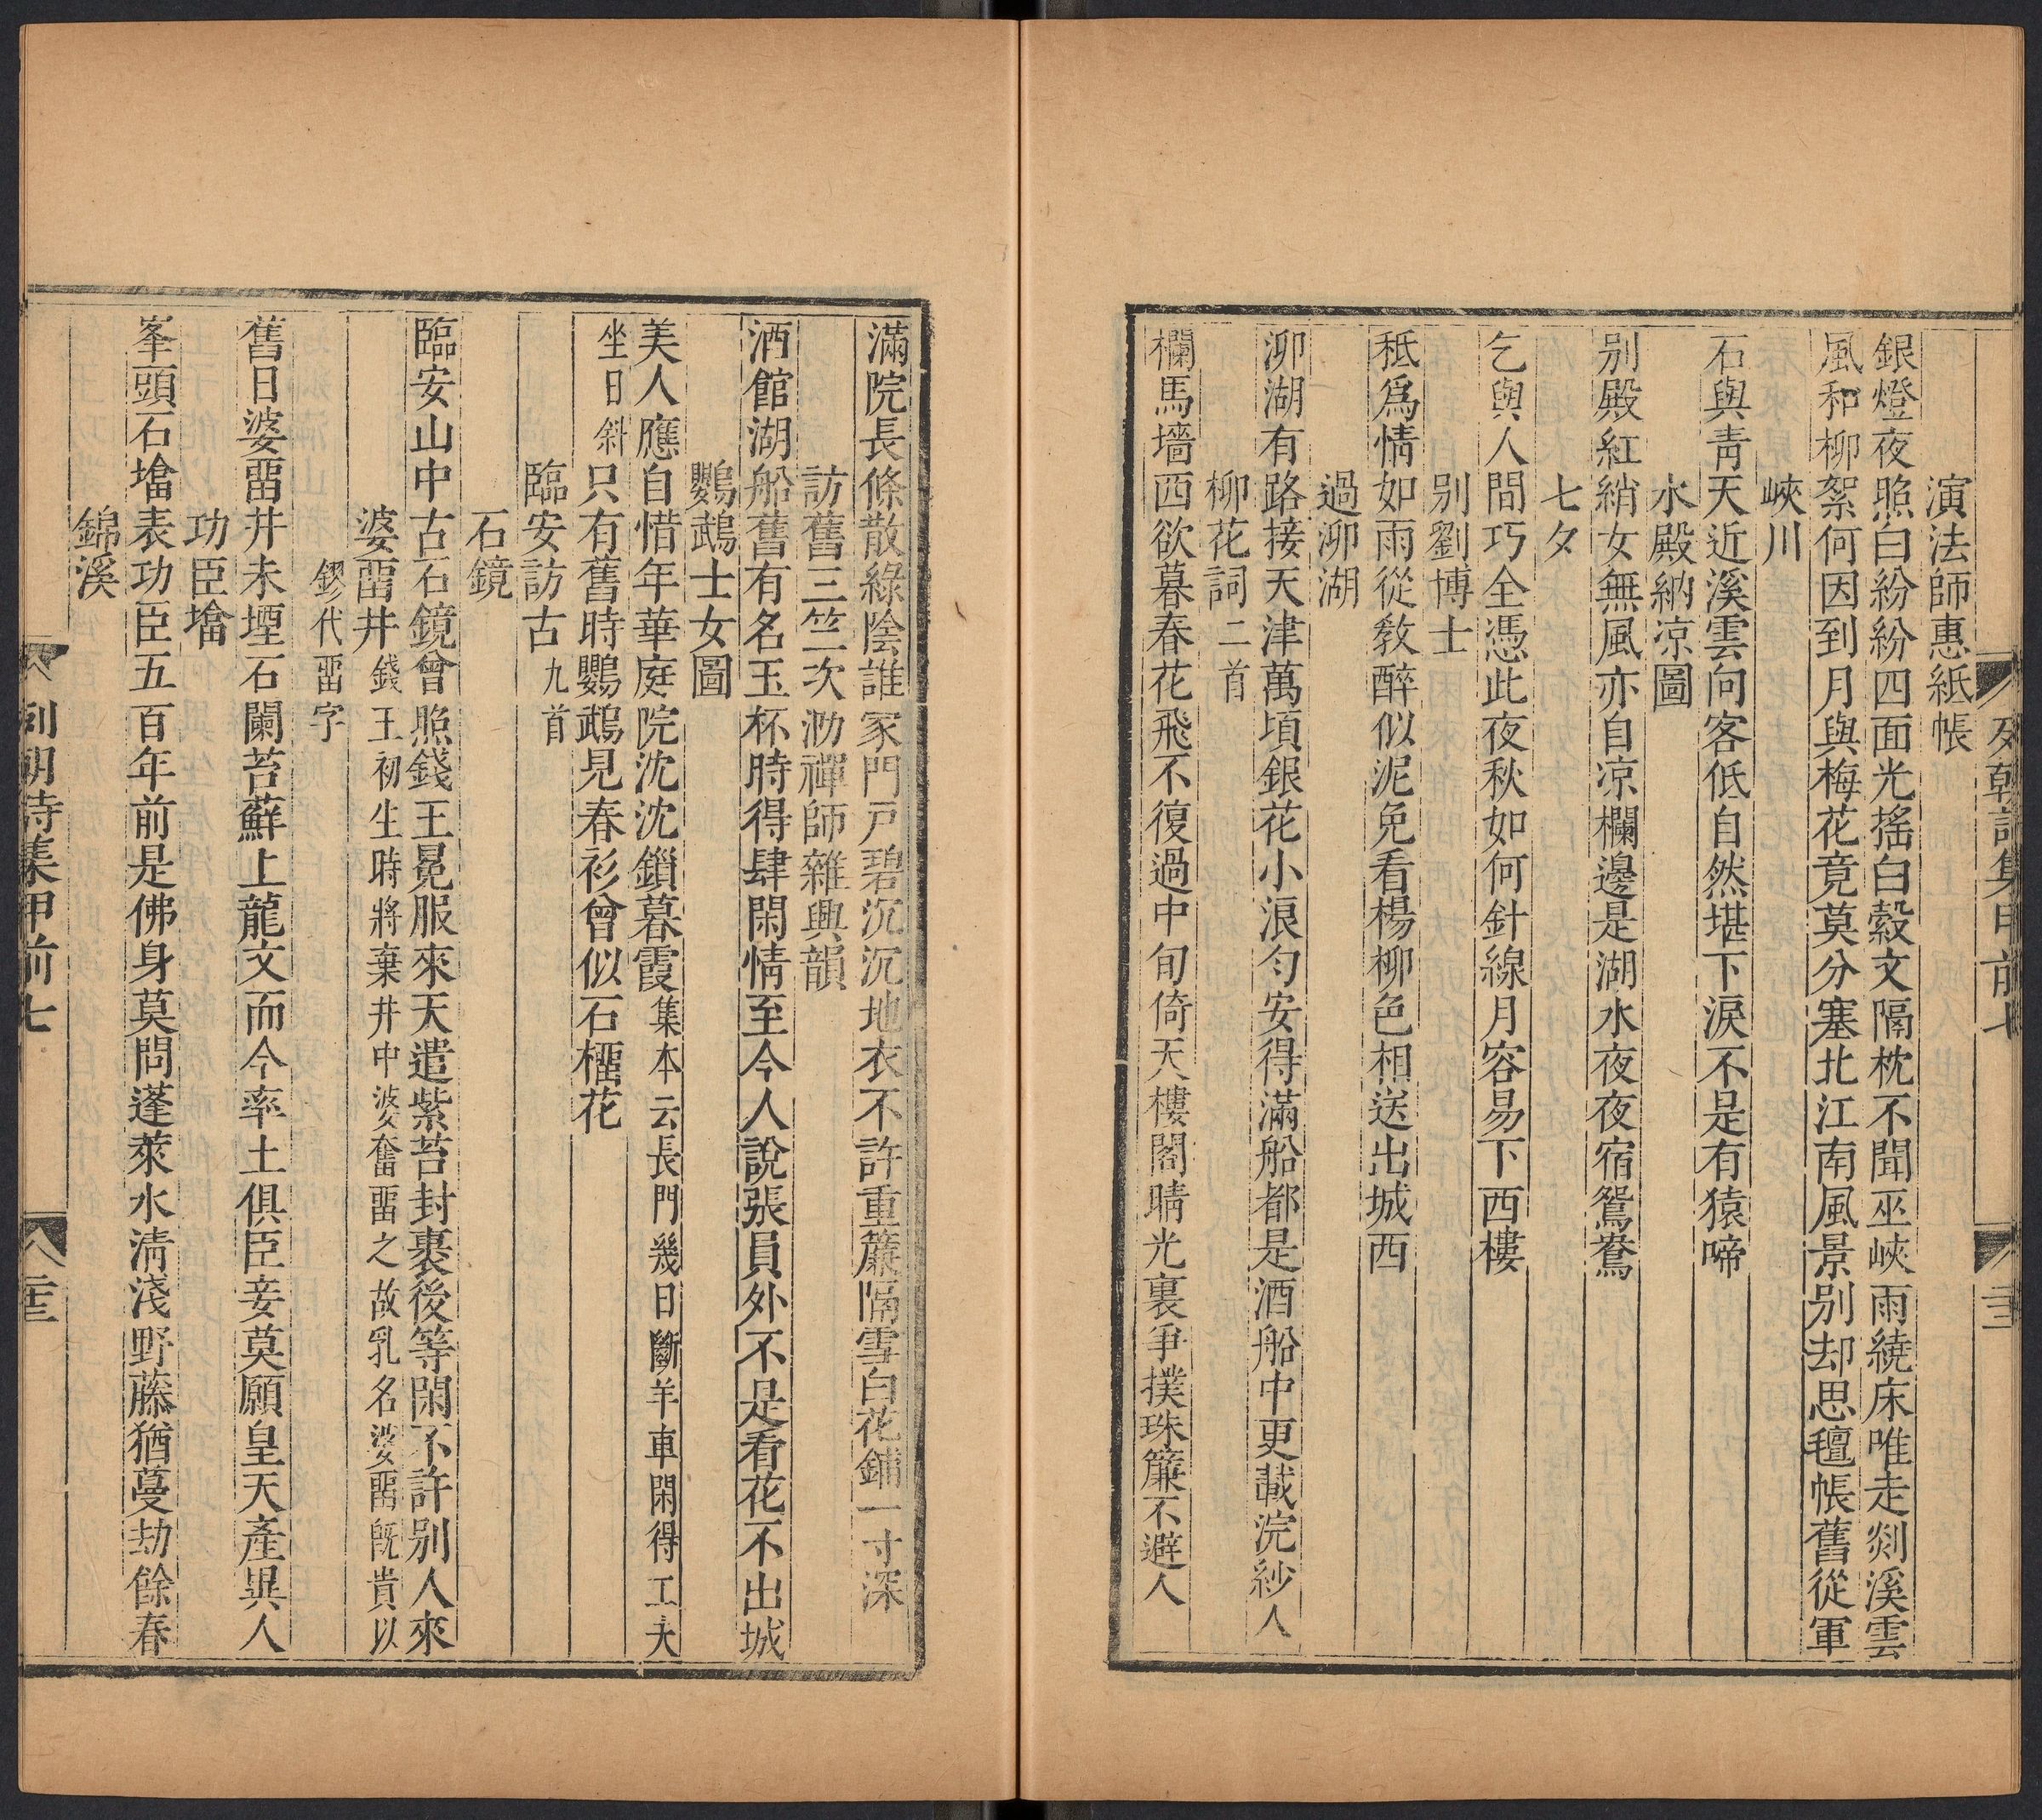 列朝詩集甲前七
演法師惠紙帳
銀燈夜照白紛紛四面光搖白縠文隔枕不聞巫峽雨繞床唯走剡溪雲
風和柳絮何因到月與梅花竟莫分塞北江南風景别却思氊帳舊從軍
峽川
石與靑天近溪雲向客低自然堪下淚不是有猿啼
水殿納凉圖
别殿紅綃女無風亦自凉欄邊是湖水夜夜宿鴛鴦
七夕
乞與人間巧全憑此夜秋如何針線月容易下西樓
别劉博士
秪爲情如雨從敎醉似泥免看楊柳色相送出城西
過泖湖
泖湖有路接天津萬頃銀花小浪勻安得滿船都是酒船中更載浣紗人
柳花詞二首
欄馬墻西欲暮春花飛不復過中旬倚天樓閣晴光裏爭撲珠簾不避人
滿院長條散綠陰誰家門戸碧沉沉地衣不許重簾隔雪白花鋪一寸深
訪舊三竺次泐禪師雜興韻
酒館湖船舊有名玉杯時得肆閑情至今人說張員外不是看花不出城
鸚鵡士女圖
美人應自惜年華庭院沈沈鎖暮霞集本云長門幾日斷羊車閑得工夫
坐日斜只有舊時鸚鵡見春衫曾似石榴花
臨安訪古九首
石鏡
臨安山中古石鏡曾照錢王冕服來天遣紫苔封裹後等閑不許别人來
婆畱井錢王初生時將棄井中婆奮畱之故乳名婆畱旣貴以
鏐代畱字
舊日婆畱井未堙石闌苔蘚上龍文而今率土俱臣妾莫願皇天產異人
功臣墖
峯頭石墖表功臣五百年前是佛身莫問蓬萊水淸淺野藤猶蔓劫餘春
錦溪
列朝詩集甲前七